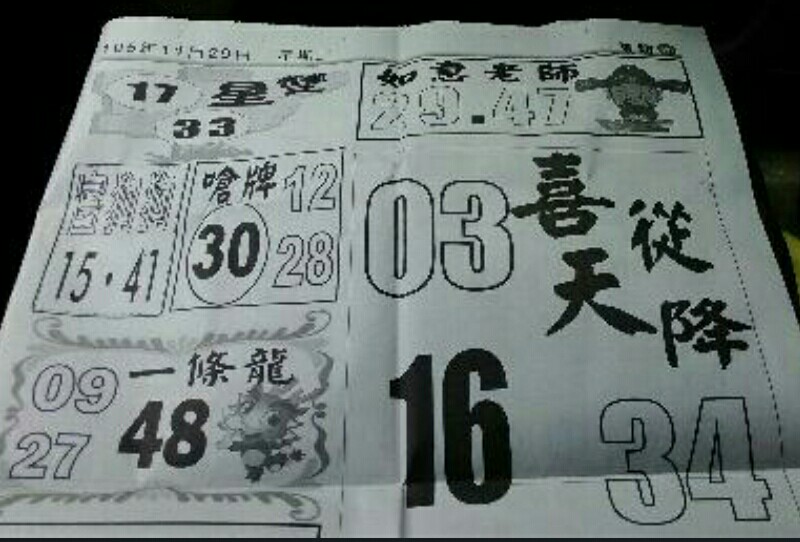 105年11月29日 星期
17 星
33
如意老師
29.47
15·41
嗆牌 12
30 28
03 喜從
天降
一條龍
09 48
27
16 34